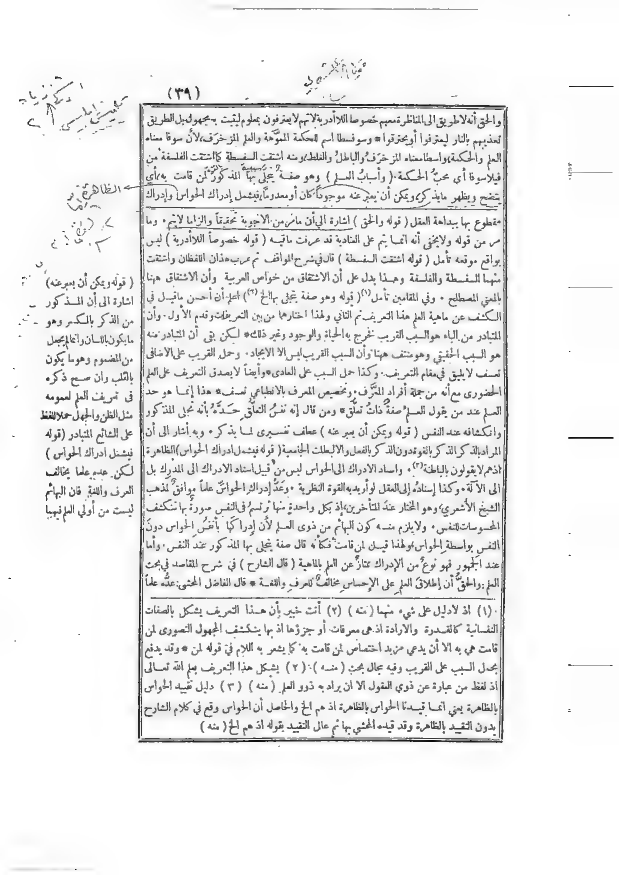 (٣٩)
والحق أنه لا طريق الى المناظرة معهم خصوصا اللاأدرية لأنهم لا يعترفون بمعلوم ليثبت به مجهول بل الطريق
تعذيبهم بالنار ليعترفوا أو يحترقوا * وسوفسطا اسم للحكمة المموهة والعلم المزخرف، لأن سوفا معناه
العلم والحكمة، واسطا معناه المزخرف والباطل والغلط، ومنه اشتقت السفسطة كما اشتقت الفلسفة من
فيلاسوفا أي محب الحكمة . ( وأسباب العلم ) وهو صفة يتجلى بها المذكور لمن قامت به، أي
يتضح ويظهر ما يذكر، ويمكن أن يعبر عنه موجودا كان أو معدوما، فيشمل إدراك الحواس وإدراك
مقطوع بها ببداهة العقل ( قوله والحق ) اشارة الى أن ما مر من الاجوبة تحقيقا والزاما لا يتم * وما
مر من قوله ولا يخفى أنه انما يتم على العنادية قد عرفت ما فيه ( قوله خصوصا اللاأدرية ) ليس
بواقع موقعه تأمل ( قوله اشتقت السفسطة ) قال في شرح المواقف ثم عرب هذان اللفظان واشتقت
منهما السفسطة والفلسفة وهذا يدل على أن الاشتقاق من خواص العربية وأن الاشتقاق ههنا
بالمعنى المصطلح * وفي المقامين تأمل (١) ( قوله وهو صفة يتجلى بها الخ (٢) ) اعلم أن أحسن ما قيل في
الكشف عن ماهية العلم هذا التعريف ثم الثاني ولهذا اختارهما من بين التعريفات وقدم الأول * وأن
المتبادر من الباء هو السبب القريب فخرج به الحياة والوجود وغير ذلك * لكن بقي أن المتبادر منه
هو السبب الحقيقي وهو منتف ههنا وأن السبب القريب ليس الا الايجاد * وحمل القريب على الاضافي
تعسف لا يليق في مقام التعريف * وكذا حمل السبب على العادي * وأيضا لا يصدق التعريف على العلم
الحضوري مع أنه من جملة أفراد المعرف * وتخصيص المعرف بالانطباعي تعسف * هذا إنما هو حد
العلم عند من يقول العلم صفة ذات تعلق * ومن قال إنه نفس التعلق حده بأنه تجلي المذكور
وانكشافه عند النفس ( قوله ويمكن أن يعبر عنه ) عطف تفسيري لما يذكر * وبه أشار الى أن
المراد بالذكر الذكر بالقوة دون الذكر بالفعل والا لبطلت الجامعية ( قوله فيشمل إدراك الحواس ) الظاهرة
اذ هم لا يقولون بالباطنة (٣) * واسناد الادراك الى الحواس ليس من قبيل اسناد الادراك الى المدرك بل
الى الآلة * وكذا إسناده إلى العقل لو أريد به القوة النظرية * وعد إدراك الحواس علما موافق لمذهب
الشيخ الأشعري، وهو المختار عند المتأخرين، إذ بكل واحدة منها ترتسم في النفس صورة بها تنكشف
المحسوسات للنفس * ولا يلزم منه كون البهائم من ذوى العلم لأن إدراكها بأنفس الحواس دون
النفس بواسطة الحواس، ولهذا قيل لمن قامت فكأنه قال صفة يتجلى بها المذكور عند النفس * وأما
عند الجمهور فهو نوع من الإدراك ممتاز عن العلم بالماهية ( قال الشارح ) في شرح المقاصد في بحث
العلم: والحق أن إطلاق العلم على الإحساس مخالف للعرف واللغة * قال الفاضل المحشى: عده علما
( قوله ويمكن أن يعبر عنه )
اشارة الى أن المذكور
من الذكر بالكسر وهو
ما يكون باللسان وانما لم يجعل
من المضموم وهو ما يكون
بالقلب وان صح ذكره
في تعريف العلم لعمومه
مثل الظن والجهل حملا للفظ
على الشائع المتبادر ( قوله
فيشمل ادراك الحواس )
لكن عده علما يخالف
العرف واللغة فان البهائم
ليست من أولي العلم فيهما
(١) اذ لا دليل على شيء منهما ( منه ) (٢) أنت خبير بأن هذا التعريف يشكل بالصفات
النفسانية كالقدرة والارادة اذ هي معرفات أو جزؤها اذ بها ينكشف المجهول التصورى لمن
قامت هي به الا أن يدعي مزيد اختصاص لمن قامت به كما يشعر به اللام في قوله لمن * وقد يدفع
بحمل السبب على القريب وفيه مجال بحث ( منه ) . (٢) يشكل هذا التعريف بعلم الله تعالى
اذ لفظ من عبارة عن ذوي العقول الا ان يراد به ذوو العلم ( منه ) (٣) دليل تقييد الحواس
بالظاهرة يعني أنما قيدنا الحواس بالظاهرة اذ هم الخ والحاصل أن الحواس وقع في كلام الشارح
بدون التقييد بالظاهرة وقد قيده المحشي بها ثم علل التقييد بقوله اذ هم الخ ( منه )